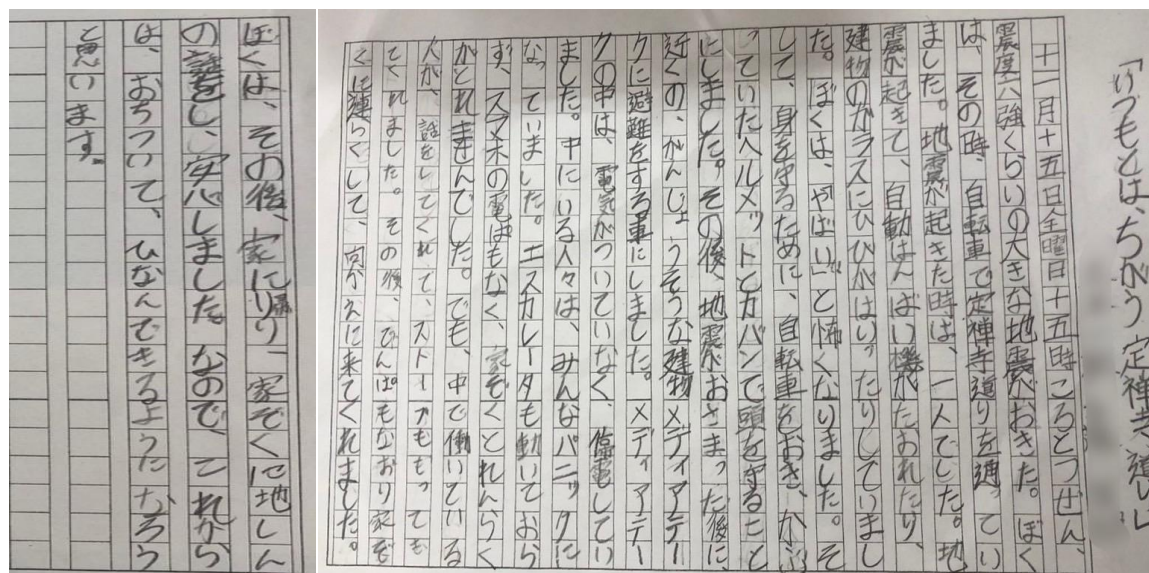 「いつもとは、ちがう定禅寺通り」
十一月十五日金曜日十五時ころとつぜん、
震度六強くらいの大きな地震がおきた。ぼく
は、その時、自転車で定禅寺道りを通ってい
ました。地震が起きた時は、一人でした。地
震が起きて、自動はんばい機がたおれたり、
建物のガラスにひびがはいったりしていまし
た。ぼくは、「やばい」と怖くなりました。そ
して、身を守るために、自転車をおき、かぶ
っていたヘルメットとカバンで頭を守ること
にしました。その後、地震がおさまった後に、
近くの、がんじょうそうな建物メディアテー
クに避難をする事にしました。メディアテー
クの中は、電気がついていなく、停電してい
ました。中にいる人々は、みんなパニックに
なっていました。エスカレータも動いておら
ず、スマホの電ぱもなく、家ぞくとれんらく
がとれませんでした。でも、中で働いている
人が、話をしてくれて、ストーブももっても
てくれました。その後、でんぱもなおり家ぞ
くに連らくして、向かえに来てくれました。
ぼくは、その後、家に帰り、家ぞくに地しん
の話をし、安心しました。なので、これから
は、おちついて、ひなんできるようになろう
と思います。